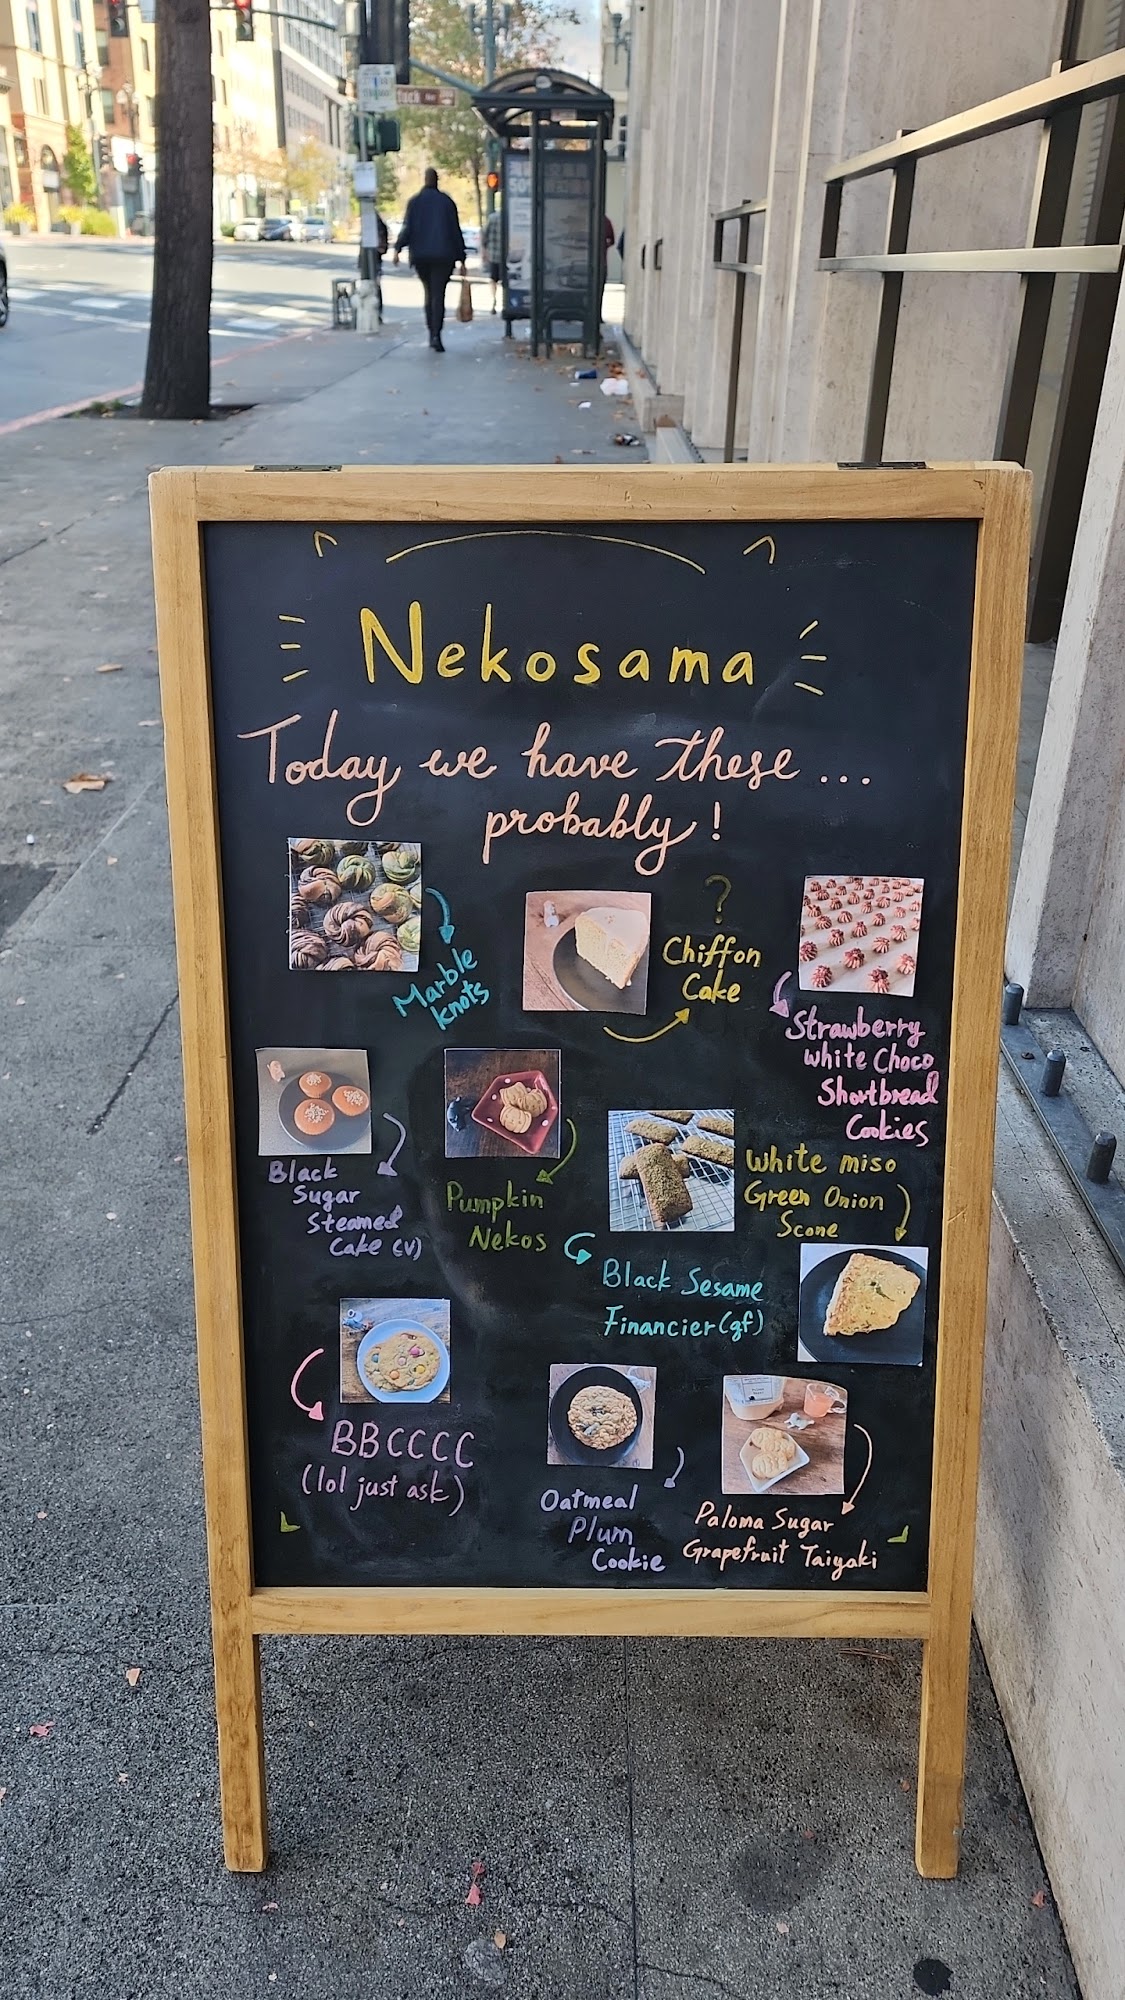 Nekosama
Today we have these...
probably!
Marble
knots
?
Chiffon
Cake
Strawberry
white Choco
Shortbread
Cookies
Black
Sugar
Steamed
Cake (V)
Pumpkin
Nekos
White miso
Green Onion
Scone
Black Sesame
Financier (gf)
BBCCCC
(lol just ask)
Oatmeal
Plum
Cookie
Paloma Sugar
Grapefruit Taiyaki